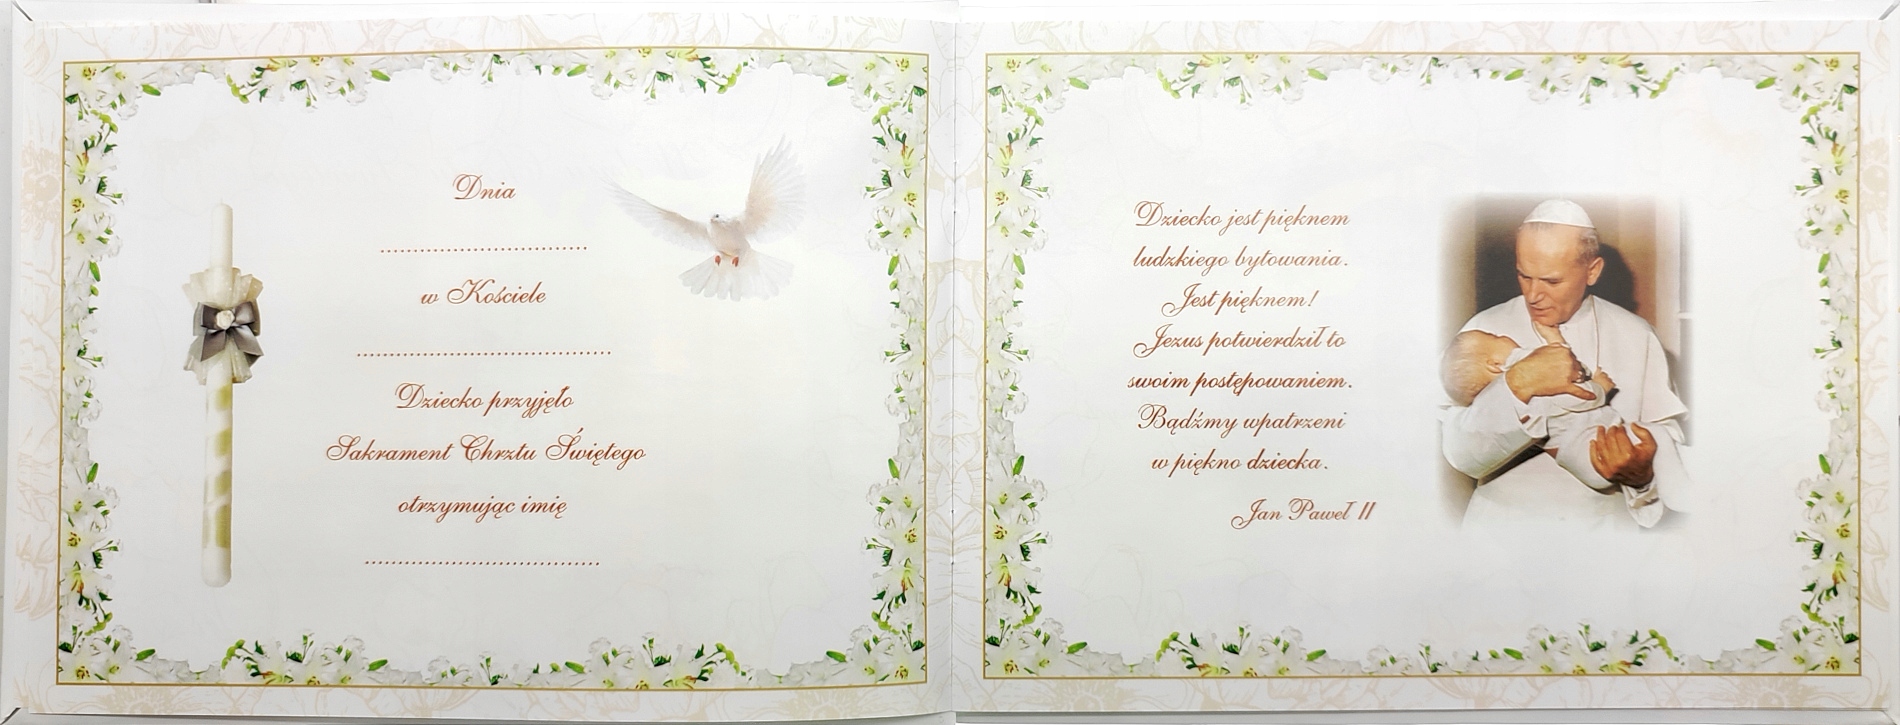 Dnia
..............................
w Kościele
.....................................
Dziecko przyjęło
Sakrament Chrztu Świętego
otrzymując imię
..................................
Dziecko jest pięknem
ludzkiego bytowania.
Jest pięknem!
Jezus potwierdził to
swoim postępowaniem.
Bądźmy wpatrzeni
w piękno dziecka.
Jan Paweł II